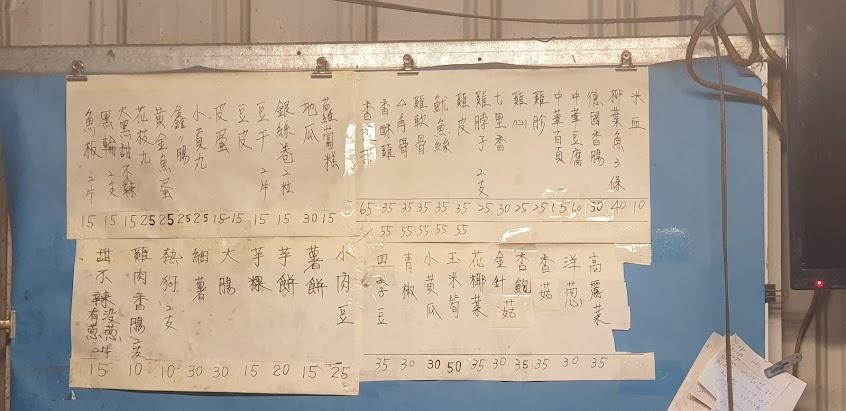 米血 10
柳葉魚3條 40
德國香腸 30
中華豆腐
中華百頁 15
雞胗 25
雞心 25
七里香 30
雞脖子2支 25
雞皮 35 55
魷魚絲 35 55
雞軟骨 35 55
三角骨 35 55
香酥雞 35 55
65
蘿蔔糕 15
地瓜 30
銀絲卷2粒 15
豆干2片 15
豆皮 15
皮蛋 15
小貢丸 25
鑫〃腸 25
黃金魚蛋 25
花枝丸 25
大黑甜不辣 15
黑輪2支 15
魚板2片 15
高麗菜 35
洋葱 30
香菇 35
杏鮑菇 35
金針菇 30
花椰菜 35
玉米筍 50
小黃瓜 30
青椒 30
四季豆 35
小肉豆 25
薯餅 15
芋餅 20
芋粿 15
大腸 30
細薯 30
熱狗2支 10
雞肉香腸2支 10
甜不辣 沒蔥 有蔥 15